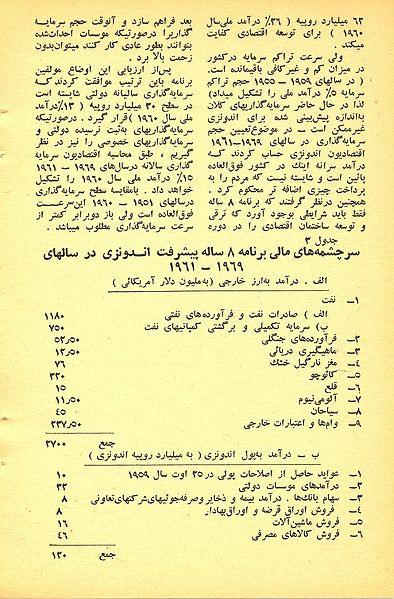 ۶۲ میلیارد روپیه ( ۲۶٪ درآمد ملی‌سال
۱۹۶۰ ) برای توسعه اقتصادی کفایت
میکند .
ولی سرعت تراکم سرمایه درکشور
در میزان کم و غیر کافی باقیمانده است.
( در سالهای ۱۹۵۹ - ۱۹۵۵ حجم تراکم
سرمایه ۵٪ درآمد ملی را تشکیل میداد)
لذا در حال حاضر سرمایه‌گذاریهای کلان
باندازه پیش‌بینی شده برای اندونزی
غیرممکن است - در موضوع‌تعیین حجم
سرمایه‌گذاری در سالهای ۱۹۶۹-۱۹۶۱
اقتصادیون اندونزی حساب کردند که
درآمد سرانه اینك در کشور فوق‌العاده
پائین است و شایسته نیست که مردم را به
پرداخت چیزی اضافه تر محکوم کرد .
همچنین درنظر گرفتند که برنامه ۸ ساله
فقط باید شرایطی بوجود آورد که ترقی
و توسعه ساختمان اقتصادی را در دوره
بعد فراهم سازد و آنوقت حجم سرمایه-
گذاریرا درصورتیکه موسسات احداث‌شده
بتوانند بطور عادی کار کنند میتوان‌بدون
زحمت بالا برد .
پس‌از ارزیابی این اوضاع مولفین
برنامه باین ترتیب موافقت کردندکه
سرمایه‌گذاری سالیانه دولتی شایسته است
در سطح ۳۰ میلیارد روپیه ( ۱۳٪درآمد
ملی سال ۱۹۶۰ )قرار گیرد . درصورتیکه
سرمایه‌گذاریهای به‌ثبت نرسیده دولتی و
سرمایه‌گذاریهای خصوصی را نیز در نظر
گیریم ، طبق محاسبه اقتصادیون سرمایه
گذاری سالانه درسال‌های ۱۹۶۹ - ۱۹۶۱
۱۵٪ درآمد ملی سال ۱۹۶۰ را تشکیل
خواهد داد . بامقایسه سطح سرمایه‌گذاری
درسالهای ۱۹۵۱ - ۱۹۶۰ این‌سرعت
فوق‌العاده است ولی باز دوبرابر کمتر از
سرعت سرمایه‌گذاری مطلوب میباشد .
جدول ۳
سرچشمه‌های مالی برنامه ۸ ساله پیشرفت اندونزی در سالهای
۱۹۶۹ - ۱۹۶۱
الف . درآمد به‌ارز خارجی (به‌ملیون دلار آمریکائی )
۱- نفت
الف ) صادرات نفت و فرآورده‌های نفتی ۱۱۸۰
ب) سرمایه تکمیلی و برگشتی کمپانیهای نفت ۷۵۰
۲- فرآورده‌های جنگلی ۵۲ر۵۰
۳- ماهیگیری دریائی ۱۲ر۵۰
۴- مغز نارگیل خشك ۷۶
۵- کائوچو ۳۲۰
۶- قلع ۱۵
۷- آلومی‌نیوم ۱۱ر۵۰
۸- سیاحان ۴۵
۹- وام‌ها و اعتبارات خارجی ۲۳۷ر۵۰
جمع ۲۷۰۰
ب - درآمد به‌پول اندونزی ( به میلیارد روپیه اندونزی )
۱- عواید حاصل از اصلاحات پولی در ۲۵ اوت سال ۱۹۵۹ ۱۰
۲- درآمدهای موسسات دولتی ۳۲
۳- سهام بانك‌ها . درآمد بیمه و ذخایر وصرفه‌جوئیهای‌شرکتهای‌تعاونی ۸
۴- فروش اوراق قرضه و اوراق‌بهادار ۸
۵- فروش ماشین‌آلات ۱۶
۶- فروش کالاهای مصرفی ۴۶
جمع ۱۲۰